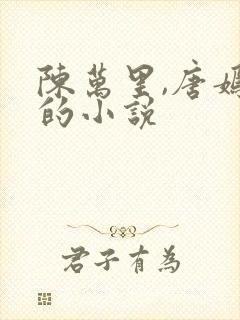 陳萬里,唐媽
的小說
君子有為